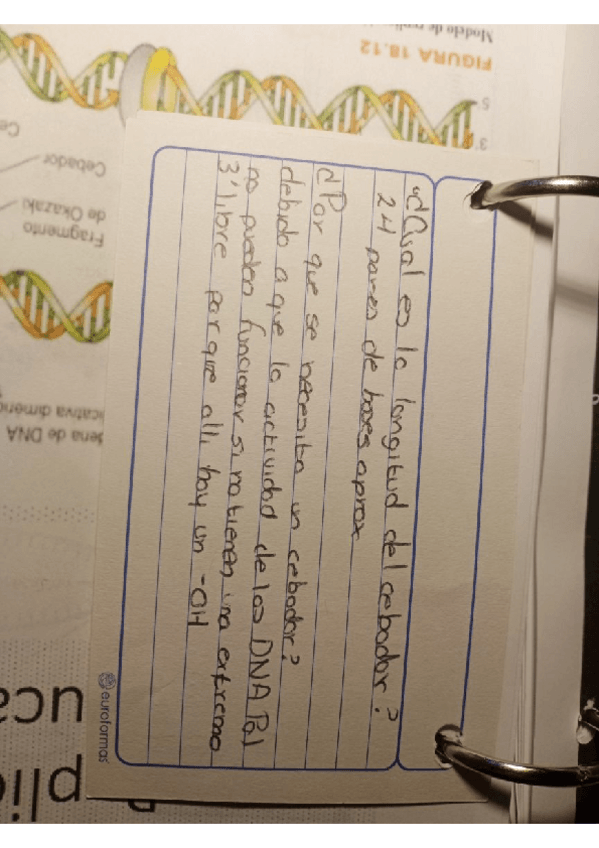 ¿Cual es la longitud del cebador?
24 pares de bases aprox
¿Por que se necesita un cebador?
debido a que la actividad de las DNA Pol
no pueden funcionar si no tienen una extremo
3' libre porque alli hay un -OH
euroformas
FIGURA 18.12
Modelo de
5'
3'
Cebador
Fragmento
de Okazaki
icativa
dena de DNA
uca
plic